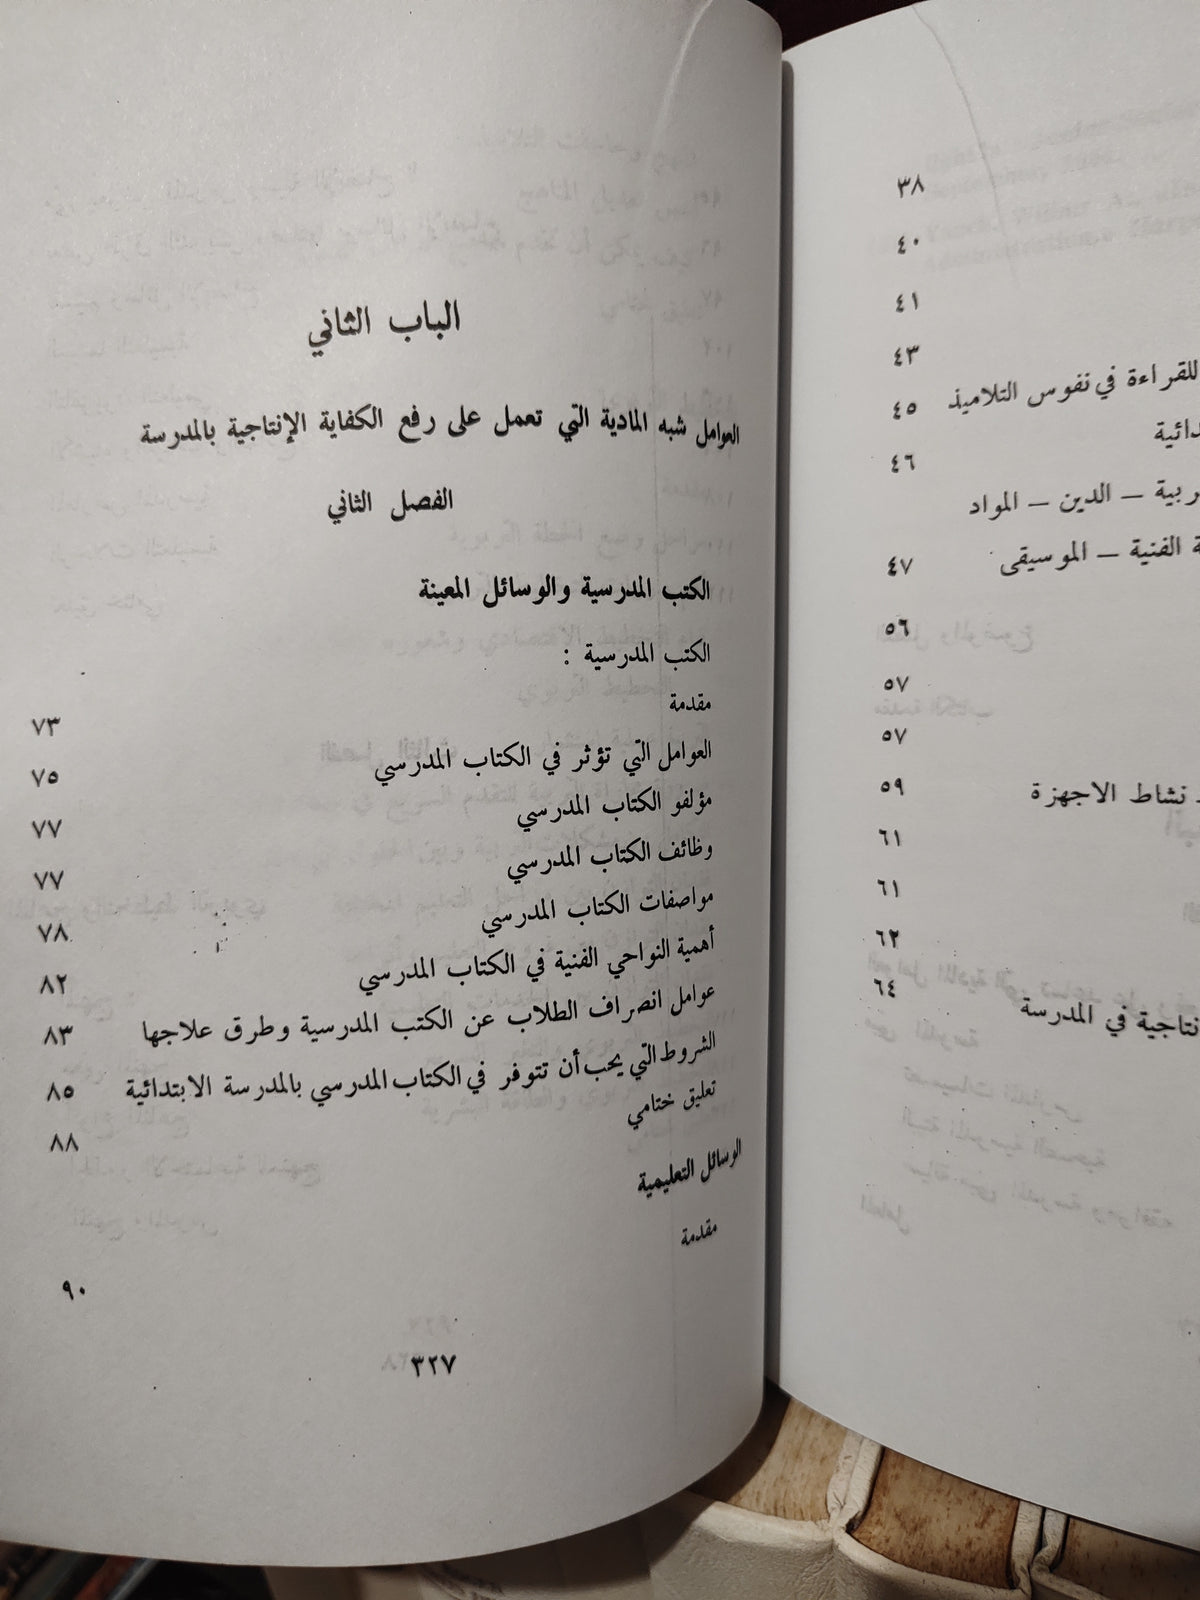 ٣٨
٤٠
٤١
٤٣
للقراءة في نفوس التلاميذ ٤٥
٤٦
ربية – الدين – المواد
الفنية – الموسيقى ٤٧
٥٦
٥٧
٥٧
نشاط الاجهزة ٥٩
٦١
٦١
٦٢
في المدرسة ٦٤
الباب الثاني
العوامل شبه المادية التي تعمل على رفع الكفاية الإنتاجية بالمدرسة
الفصل الثاني
الكتب المدرسية والوسائل المعينة
الكتب المدرسية :
مقدمة ٧٣
العوامل التي تؤثر في الكتاب المدرسي ٧٥
مؤلفو الكتاب المدرسي ٧٧
وظائف الكتاب المدرسي ٧٧
مواصفات الكتاب المدرسي ٧٨
أهمية النواحي الفنية في الكتاب المدرسي ٨٢
عوامل انصراف الطلاب عن الكتب المدرسية وطرق علاجها ٨٣
الشروط التي يحب أن تتوفر في الكتاب المدرسي بالمدرسة الابتدائية ٨٥
تعليق ختامي ٨٨
الوسائل التعليمية
مقدمة ٩٠
٣٢٧